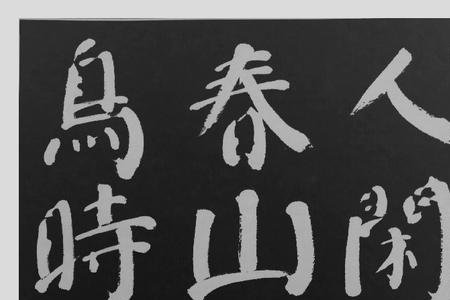 人閑
春山
鳥時